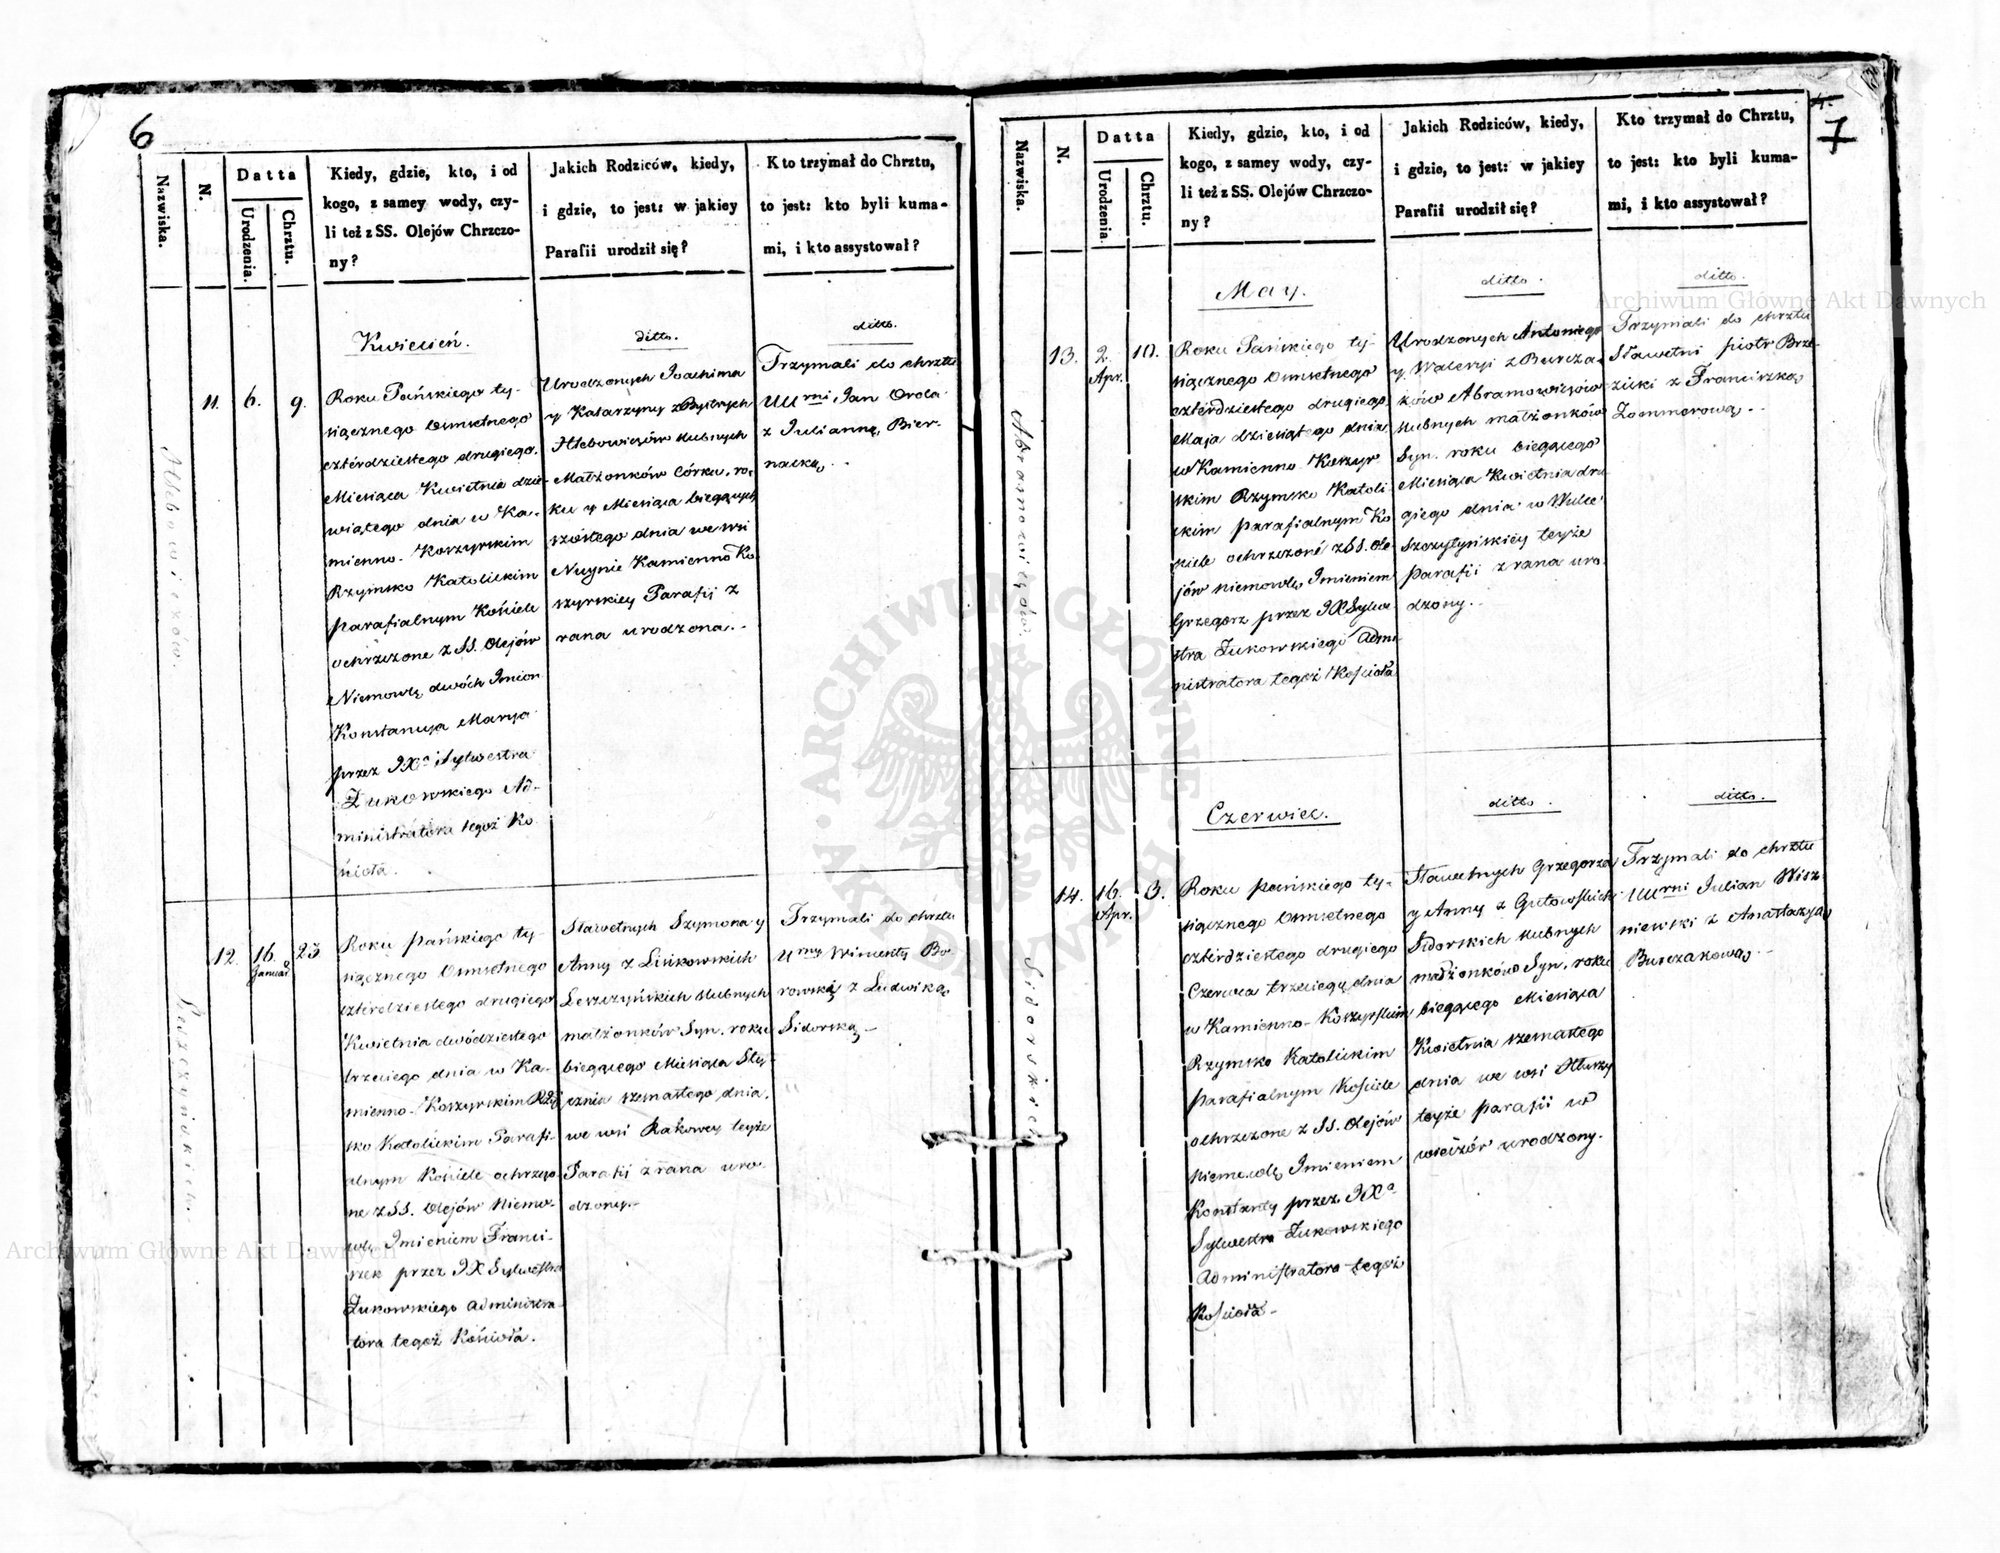 6
Nazwiska.
N.
Datta
Urodzenia.
Chrztu.
Kiedy, gdzie, kto, i od
kogo, z samey wody, czy-
li też z SS. Olejów Chrzczo-
ny?
Jakich Rodziców, kiedy,
i gdzie, to jest: w jakiey
Parafii urodził się?
Kto trzymał do Chrztu,
to jest: kto byli kuma-
mi, i kto assystował?
Hlebowiczów.
11.
6.
9.
Kwiecień.
Roku Pańskiego ty-
siącznego Osmsetnego
cztérdziestego drugiego.
Miesiąca Kwietnia dzie-
wiątego dnia w Ka-
mienno-Koszyrskim
Rzymsko Katolickim
parafialnym Kościele
ochrzczone z SS. Olejów
Niemowlę dwóch Imion
Konstancya Marya
przez JXa Sylwestra
Żukowskiego Ad-
ministratora tegoż Ko-
ścioła.
ditto.
Urodzonych Joachima
y Katarzyny z Bystrych
Hlebowiczów slubnych
Małżonków Córka, ro-
ku y Miesiąca biegących
szóstego dnia we wsi
Nuynie Kamienno Ko
szyrskiey Parafij z
rana urodzona.-
ditto.
Trzymali do chrztu
UUrni Jan Orda
z Julianną Bier-
nacką.
Leszczyńskich
12.
16.
Januar
23
Roku Pańskiego ty-
siącznego Osmsetnego
cztérdziestego drugiego
Kwietnia dwódziestego
trzeciego dnia w Ka-
mienno-Koszyrskim Rzym
sko Katolickim Parafi-
alnym Kościele ochrzczo-
ne z SS. Olejów Niemo-
wlę Imieniem Franci-
szek przez JX Sylwestra
Żukowskiego administra-
tora tegoż Kościoła.
Sławetnych Szymona y
Anny z Lisikowskich
Leszczyńskich slubnych
małżonków Syn. roku
biegącego Miesiąca Sty-
cznia szesnastego dnia.
we wsi Rakowey teyże
Parafij z rana uro-
dzony.-
Trzymali do chrztu
Urny Wincenty Bo-
rowski z Ludwiką
Sidorską-
7
Nazwiska.
N.
Datta
Urodzenia.
Chrztu.
Kiedy, gdzie, kto, i od
kogo, z samey wody, czy-
li też z SS. Olejów Chrzczo-
ny?
Jakich Rodziców, kiedy,
i gdzie, to jest: w jakiey
Parafii urodził się?
Kto trzymał do Chrztu,
to jest: kto byli kuma-
mi, i kto assystował?
Abramowiczów.
13.
2.
Apr.
10.
May.
Roku Pańskiego ty-
siącznego Osmsetnego
cztérdziestego drugiego
Maja dziesiątego dnia
w Kamienno-Koszyr
skim Rzymsko Katoli-
ckim parafialnym Ko
ściele ochrzczoné z SS. Ole-
jów niemowlę Imieniem
Grzegorz przez JX Sylwe-
stra Żukowskiego Admi-
nistratora tegoż Kościoła
ditto.
Urodzonych Antoniego
y Waleryi z Burcza-
ków Abramowiczów
slubnych małżonków
Syn. roku biegącego
Miesiąca Kwietnia dru
giego dnia w Wulce
Szczytyńskiéy teyże
parafii z rana uro-
dzony.-
ditto.
Trzymali do chrztu
Sławetni piotr Brze-
ziński z Franciszką
Zommerową.-
Sidorskich
14.
16.
Apr.
3.
Czerwiec.
Roku pańskiego ty-
siącznego Osmsetnego
cztérdziestego drugiego
Czerwca trzeciego dnia
w Kamienno-Koszyrskim
Rzymsko Katolickim
parafialnym Kościele
ochrzczone z SS. Olejów
niemowlę Imieniem
Konstanty przez JXa
Sylwestra Żukowskiego
Administratora tegoż
Kościoła-
ditto.
Sławetnych Grzegorza
y Anny z Gutowskich
Sidorskich slubnych
małżonków Syn. roku
biegącego Miesiąca
Kwietnia szesnastego
dnia we wsi Hłuszy
teyże parafii w
wieczór urodzony.
ditto.
Trzymali do chrztu
UUrni Julian Wisz-
niewski z Anastazyą
Burczakową.-
Archiwum Główne Akt Dawnych
Archiwum Główne Akt Dawnych
ARCHIWUM GŁÓWNE AKT DAWNYCH